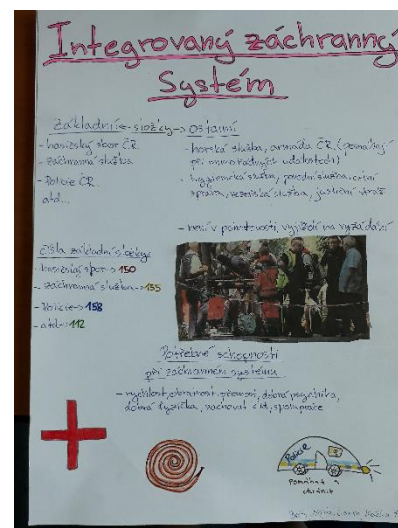 Integrovaný záchranný
Systém
Základní <- složky -> ostatní
- hasičský sbor ČR
- záchranná služba
- Policie ČR
atd...
- horská služba, armáda ČR, (pomáhají
při mimořádných událostech)
- hygienická služba, povodní služba, celní
správa, vězeňská služba, justiční stráž
- není v pohotovosti, vyjíždí na vyžádání
Čísla základní složky:
- hasičský sbor -> 150
- záchranná služba -> 155
- Policie -> 158
- atd -> 112
Potřebné schopnosti
při záchranném systému
- rychlost, obratnost, přesnost, dobrá psychika,
dobrá fyzička, zachovat klid, spolupráce
Police
Pomáhat a
chránit